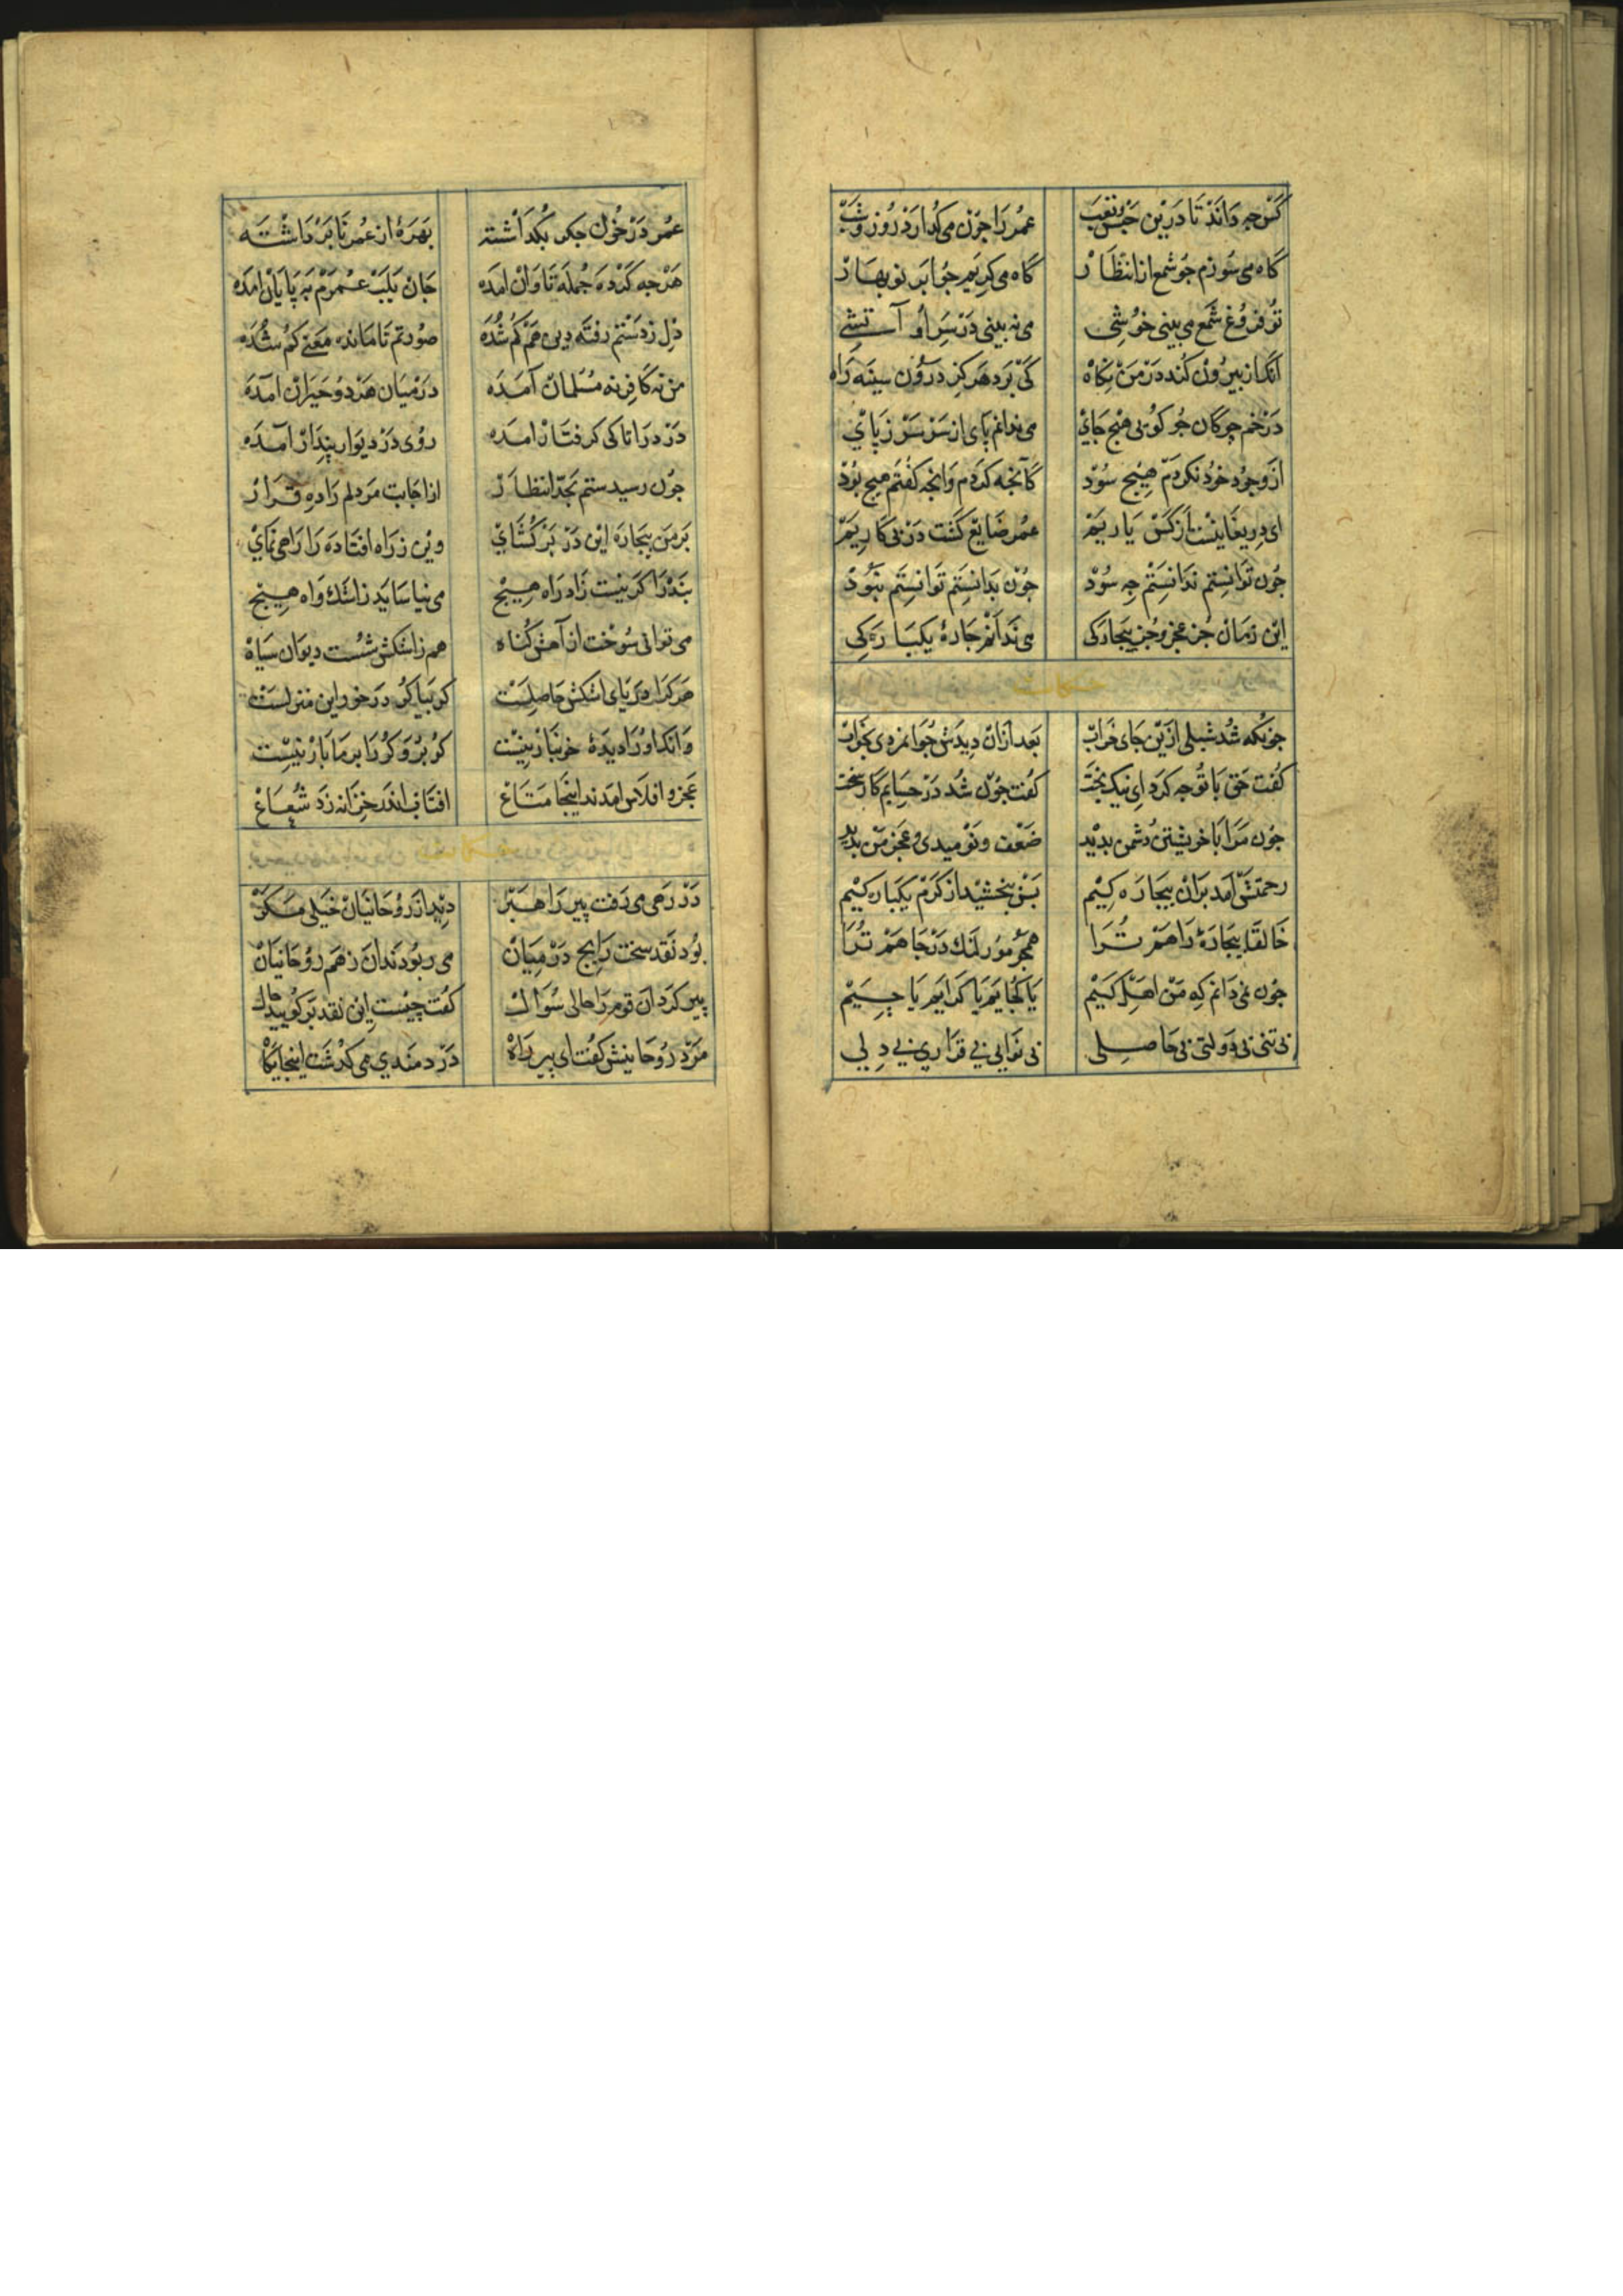 کس چه داند تا درین حبس تعب عمر را چون می کدارد روز و شب
گاه می سوزم جو شمع از انتظار گاه می کریم جو ابر نوبهار
تو فروغ شمع می بینی خوشی می نه بینی در سر او آتشی
آنک از بیرون کند در من نکاه کی برد هرکز درون سینه راه
در خم جوکان جو کویی هیج جای می ندانم پای از سر سر ز پای
از وجود خود نکردم هیج سود کآنجه کردم وانجه کفتم هیج بود
ای دریغا نیست از کس یاریم عمر ضایع کشت در بی کاریم
جون توانستم ندانستم جه سود جون بدانستم توانستم نبود
این زمان جز عجز و جز بیجارکی می ندانم جاره یکبارکی
جونکه شد شبلی ازین جای خراب بعد ازان دیدش جوانمردی بخواب
کفت حق با تو جه کرد ای نیک بخت کفت جون شد در حسابم کار سخت
جون مرا با خویشتن دشمن بدید ضعف و نومیدی و عجز من بدید
رحمتش آمد بران بیجاره کیم بس ببخشید از کرم یکباره کیم
خالقا بیجاره راهم ترا همجو مور لنک در جاهم ترا
جون نمی دانم که من اهل کیم یا کجایم یا کدایم یا جیم
بی تنی بی دولتی بی حاصلی بی نوایی بی قراری بی دلی
عمر در خون جکر بکداشته بهره از عمر نا برداشته
هرجه کرده جمله تاوان آمده جان بلب عمرم به پایان آمده
دل ز دستم رفته دین هم کم شده صورتم تا مانده معنی کم شده
من نه کافر نه مسلمان آمده در میان هر دو حیران آمده
در درا تا کی کرفتار آمده روی در دیوار پندار آمده
جون رسیدستم بجد انتظار از اجابت مر دلم را ده قرار
بر من بیجاره این در برکشای وین ز راه افتاده را راهی نمای
بنده را کر نیست زاد راه هیج می نیاساید ز اشک و آه هیج
می توانی سوخت از آهش کناه هم ز اشکش شست دیوان سیاه
هر کرا دریای اشکش حاصلست کو بیا کو در خور این منزلست
وانک او را دیده خونبار نیست کو برو کو را بر ما بار نیست
عجز و افلاس آمدند اینجا متاع افتاب اندر خزانه زد شعاع
در رهی می رفت پیر راهبر دید از روحانیان خیلی مکر
بود نقد سخت رایج در میان می ربودند آن ز هم روحانیان
پیر کرد آن قوم را حالی سوال کفت چیست این نقد برکویید حال
مرد روحانیش کفت ای پیر راه دردمندی می کذشت اینجایکاه